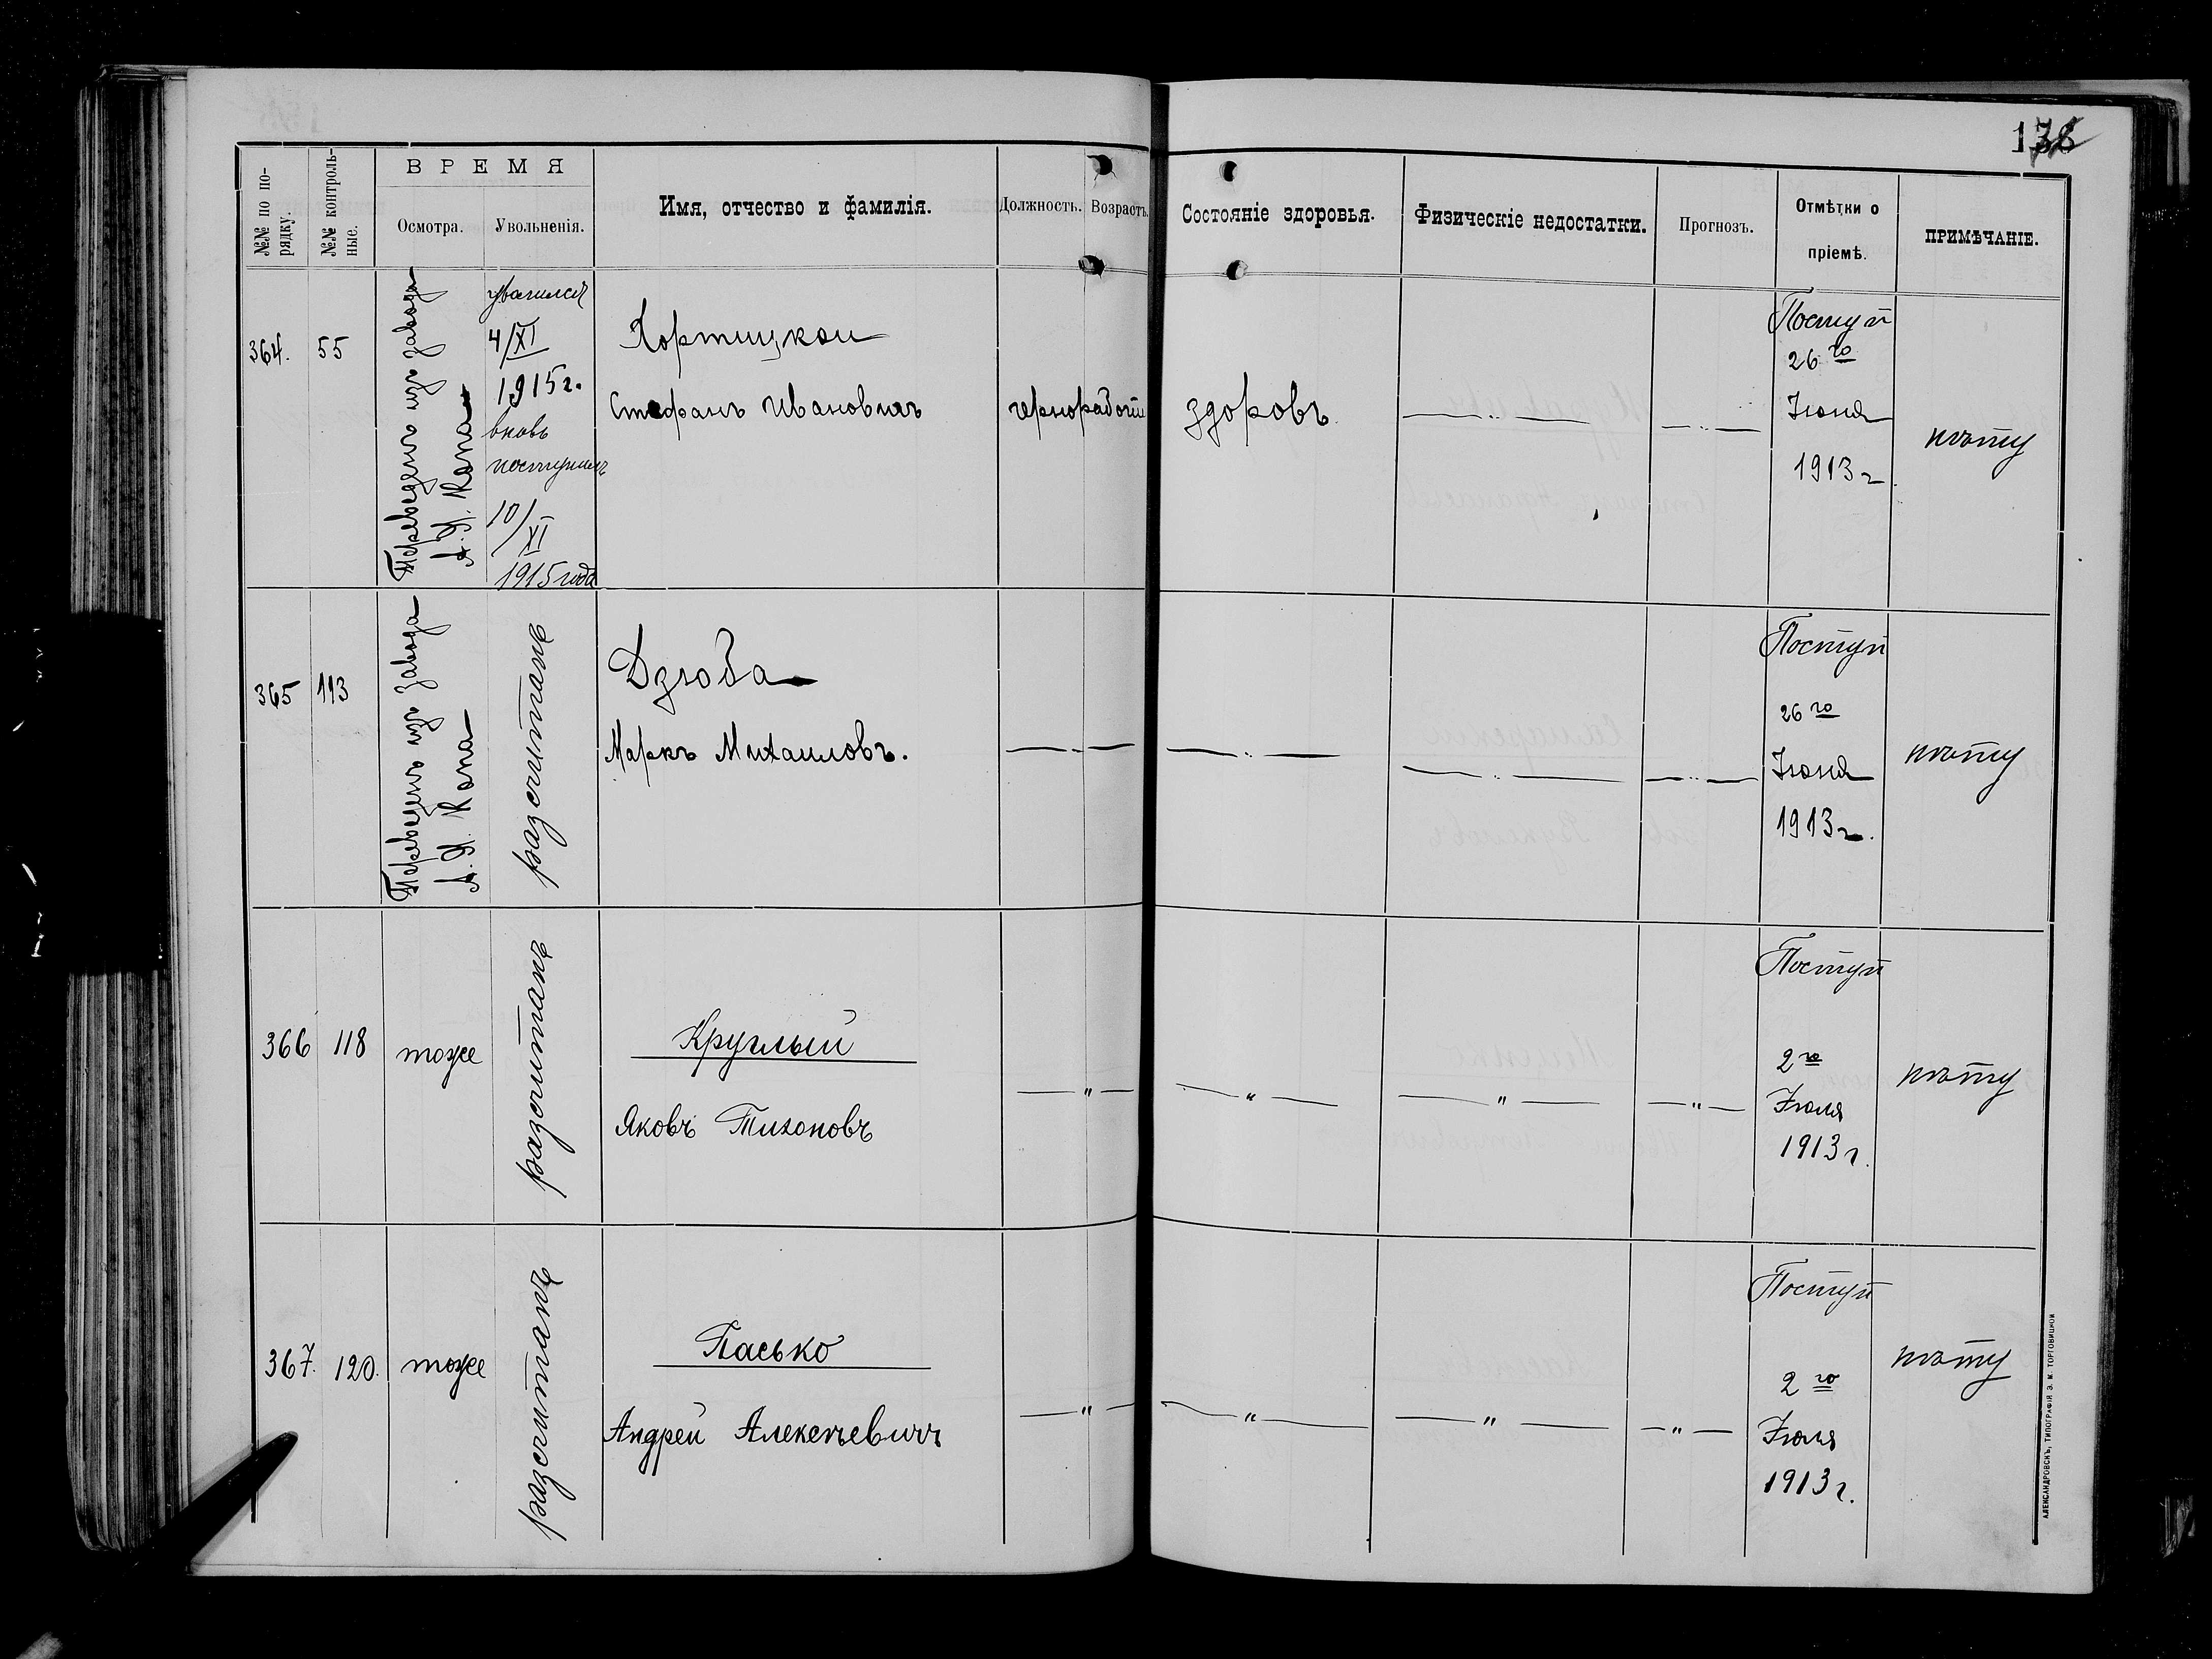 №№ по по-
рядку.
№№ контроль-
ные.
ВРЕМЯ
Осмотра.
Увольненія.
Имя, отчество и фамилія.
Должность.
Возрастъ.
Состояніе здоровья.
Физическіе недостатки.
Прогнозъ.
Отмѣтки о
пріемѣ.
ПРИМѢЧАНІЕ.
364.
55
Переведенъ изъ завода
А. Я. Копа
4/XI
1915 г.
вновь
поступилъ
10/XI
1915 года
Хортицкои
Стефанъ Ивановичъ
чернорабочи
здоровъ
Поступ
26 го
Іюня
1913 г
365
113
Переведенъ изъ Завода
А. Я. Копа
разсчитанъ
Дзюба
Маркъ Михаиловъ.
Поступ
26 го
Іюня
1913 г.
366
118
тоже
разсчитанъ
Круглый
Яковъ Тихоновъ
Поступ
2 го
Іюля
1913 г.
367.
120.
тоже
разсчитанъ
Пасько
Андрей Алексѣевичъ
Поступ
2 го
Іюля
1913 г.
АЛЕКСАНДРОВСКЪ, ТИПОГРАФІЯ Э. М. ТОРГОВИЦКОЙ